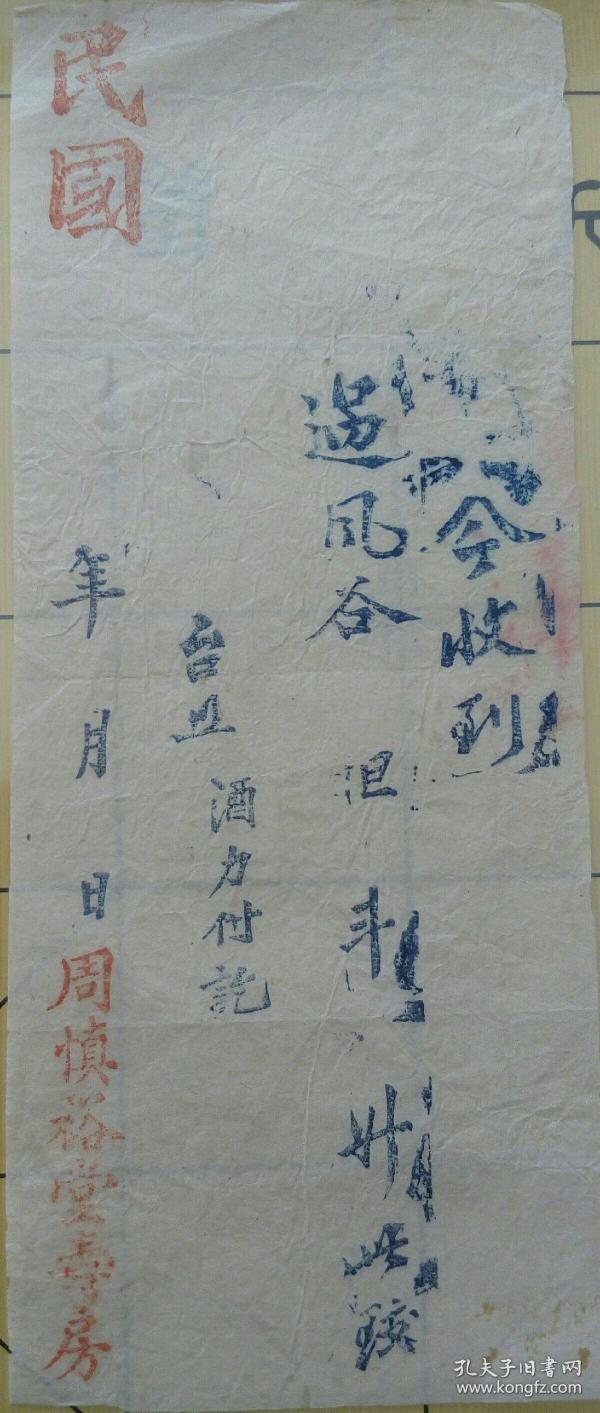 今收到
過風谷 担 斗 升 此致
台照 酒力付訖
民國 年 月 日 周慎裕堂壽房
孔夫子旧书网
www.kongfz.com